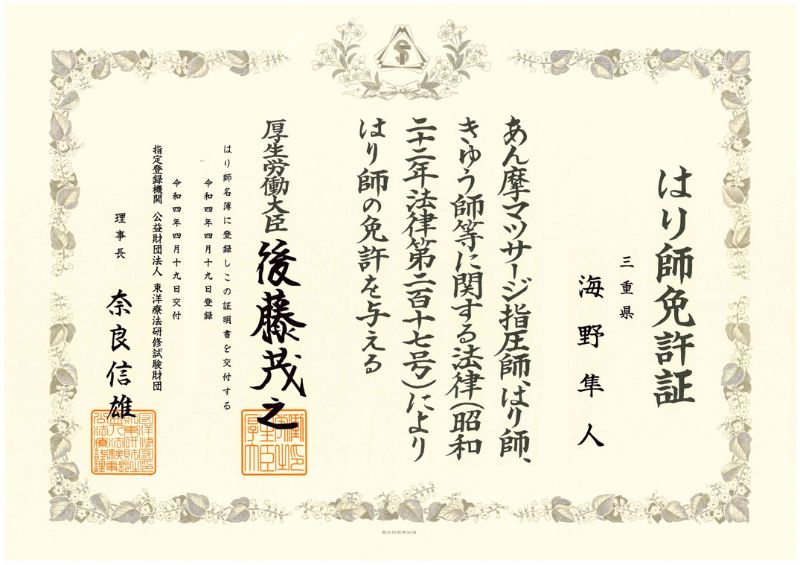 はり師免許証
三重県
海野隼人
あん摩マツサージ指圧師、はり師、
きゆう師等に関する法律(昭和
二十二年法律第二百十七号)により
はり師の免許を与える
厚生労働大臣 後藤茂之
はり師名簿に登録しこの証明書を交付する
令和四年四月十九日登録
令和四年四月十九日交付
指定登録機関 公益財団法人 東洋療法研修試験財団
理事長 奈良信雄